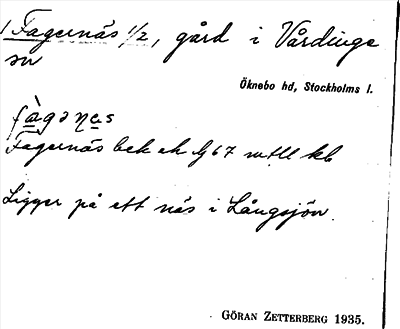 Fagernäs 1/2, gård i Vårdinge
sn
Öknebo hd, Stockholms l.
fàgənes
Fagernäs bek ek bj 67 mtll kb
Ligger på ett näs i Långsjön.
GÖRAN ZETTERBERG 1935.